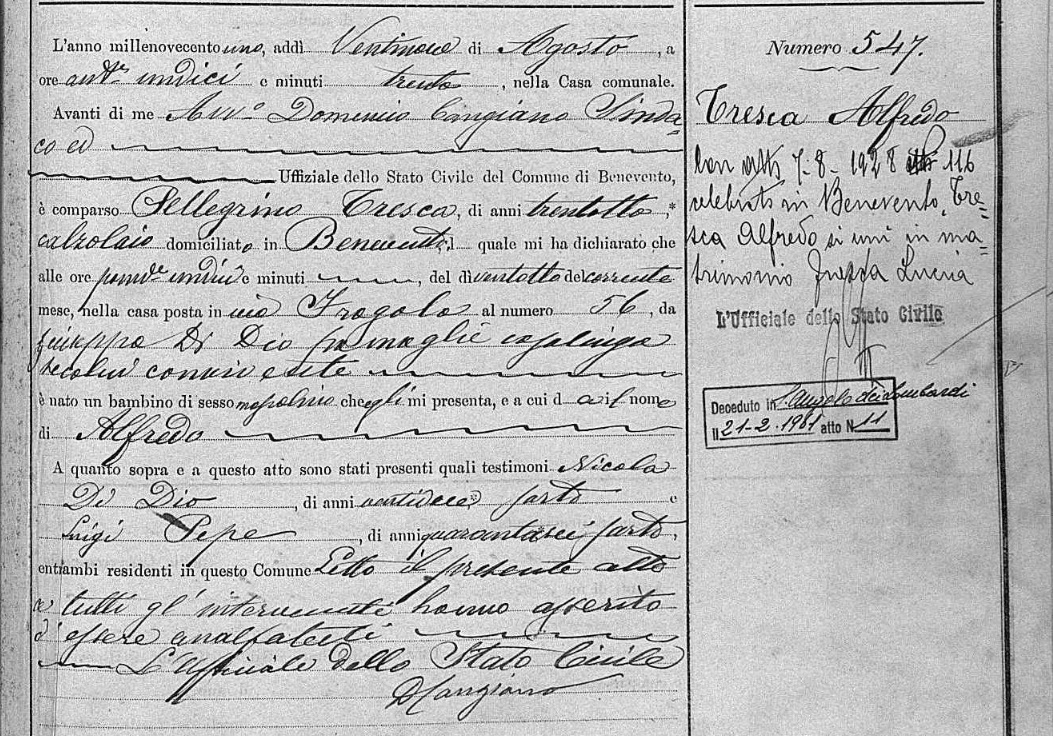 L'anno millenovecento uno, addì Ventinove di Agosto, a
ore antne undici e minuti trenta, nella Casa comunale.
Avanti di me Avvo Domenico Cangiano Sinda-
co ed
Uffiziale dello Stato Civile del Comune di Benevento,
è comparso Pellegrino Tresca, di anni trentotto,
calzolaio domiciliato in Benevento, l quale mi ha dichiarato che
alle ore pomne undici e minuti, del dì ventotto del corrente
mese, nella casa posta in via Fragola al numero 56, da
Di Dio sua moglie casalinga
seco lui convivente
è nato un bambino di sesso mascolino che egli mi presenta, e a cui dà il nome
di Alfredo
A quanto sopra e a questo atto sono stati presenti quali testimoni Nicola
Di Dio, di anni sarto e
Luigi Pepe, di anni quarantasei sarto,
entrambi residenti in questo Comune Letto il presente atto
a tutti gl'intervenuti hanno asserito
d'essere analfabeti
L'Ufficiale dello Stato Civile
DCangiano
Numero 547.
Tresca Alfredo
Con atto 7-8-1928 116
celebrato in Benevento, Tre-
sca Alfredo si unì in ma-
trimonio Lucia
L'Ufficiale dello Stato Civile
Deceduto in S. Angelo dei Lombardi
Il 21-2-1981 atto N. 11